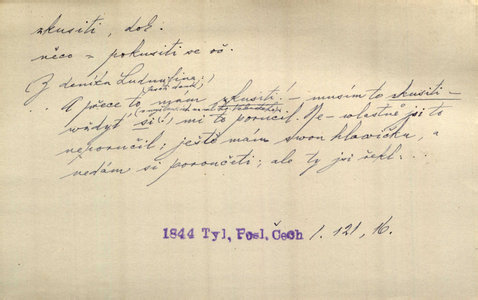 zkusiti, dok.
něco = pokusiti se oč.
Z deníka Ludmilina:
.. A přece to mám zkusiti! – musím to zkusiti –
vždyť si mi to poručil. Ne – vlastně jsi to
neporučil; ještě mám svou hlavičku, a
nedám si poroučeti; ale ty jsi řekl...
1844 Tyl, Posl. Čech 1. 121, 16.